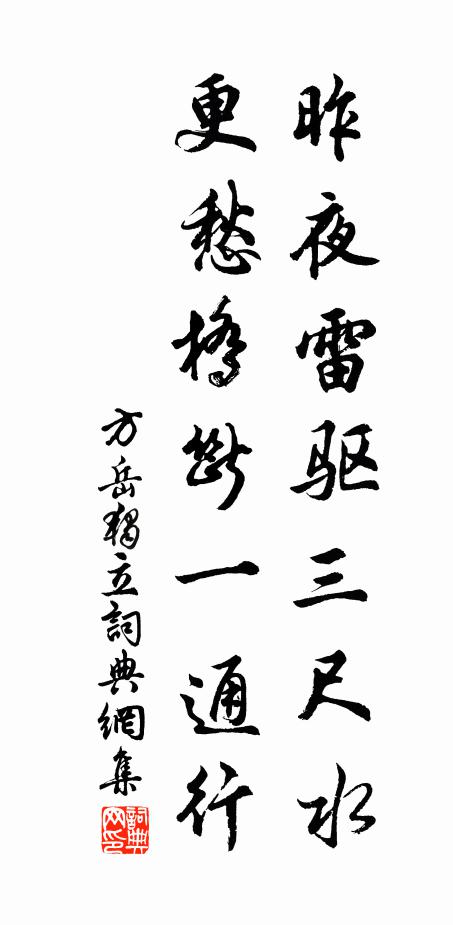 昨夜雷驱三尺水
更愁橋斷一通行
方岳獨立詞典網集
詞典网印